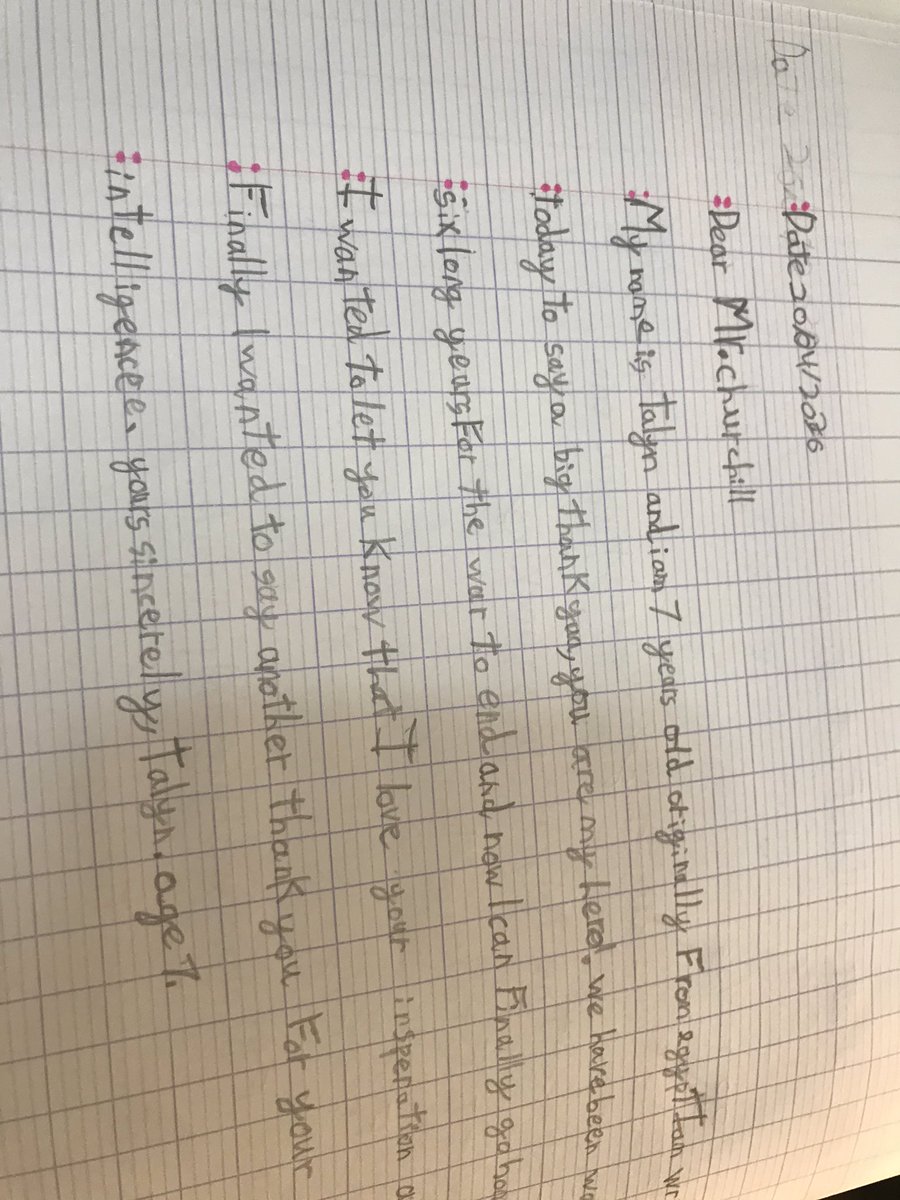 Date
Date 20/04/2026
Dear Mr.churchill
My name is talyn and i am 7 years old originally From egypt I am
today to say a big thank you, you are my hero. we have been
six long years For the war to end and now I can Finally go
I wanted to let you know that I love your insperation
Finally I wanted to say another thank you For your
intelligencee, yours sincerely, talyn. age 7.